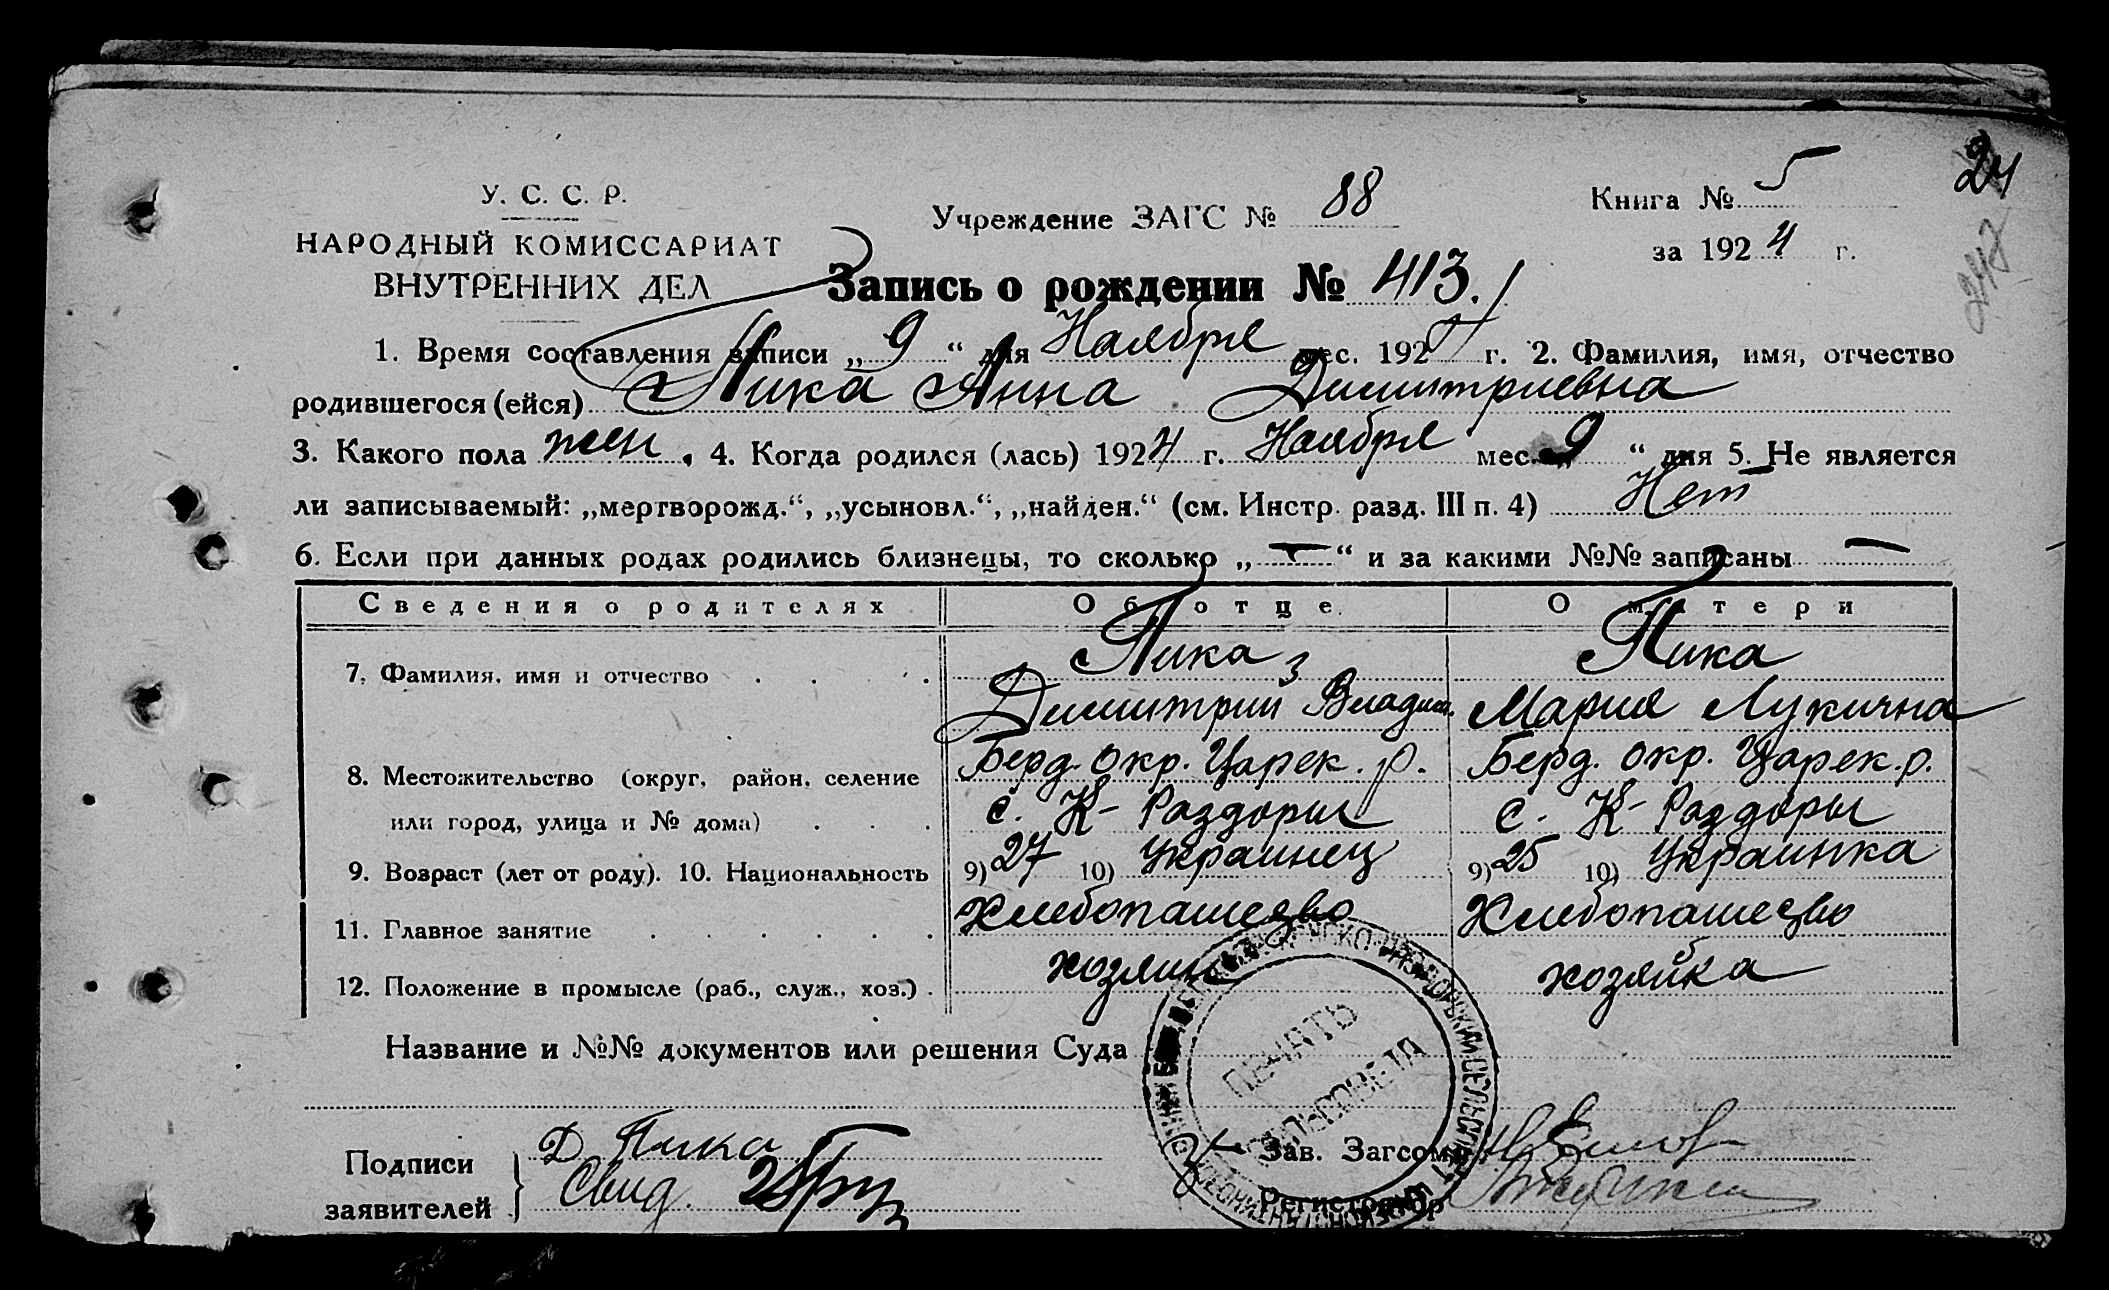 У. С. С. Р.
НАРОДНЫЙ КОМИССАРИАТ
ВНУТРЕННИХ ДЕЛ
Учреждение ЗАГС № 88
Книга № 5
за 1924 г.
24
247
Запись о рождении № 413.
1. Время составления записи „ 9 “ дня Наября мес. 1924 г. 2. Фамилия, имя, отчество
родившегося (ейся) Пика Анна Димитриевна
3. Какого пола жен. 4. Когда родился (лась) 1924 г. Наября мес. „ 9 “ дня 5. Не является
ли записываемый: „мертворожд.“, „усыновл.“, „найден.“ (см. Инстр. разд. III п. 4) Нет
6. Если при данных родах родились близнецы, то сколько „ — “ и за какими №№ записаны —
Сведения о родителях Об отце. О матери
7. Фамилия, имя и отчество Пика Пика
Димитрий Владим. Мария Лукична
8. Местожительство (округ, район, селение Берд. окр. Царек. р. Берд. окр. Царек. р.
или город, улица и № дома) с. К- Раздоры с. К- Раздоры
9. Возраст (лет от роду). 10. Национальность 9) 27 10) Украинец 9) 25 10) Украинка
11. Главное занятие Хлебопашество Хлебопашество
12. Положение в промысле (раб., служ., хоз.) хозяин хозяйка
Название и №№ документов или решения Суда
ПЕЧАТЬ
СЕЛЬСОВЕТА
Подписи Д Пика Зав. Загсом
заявителей Свид. Регистратор